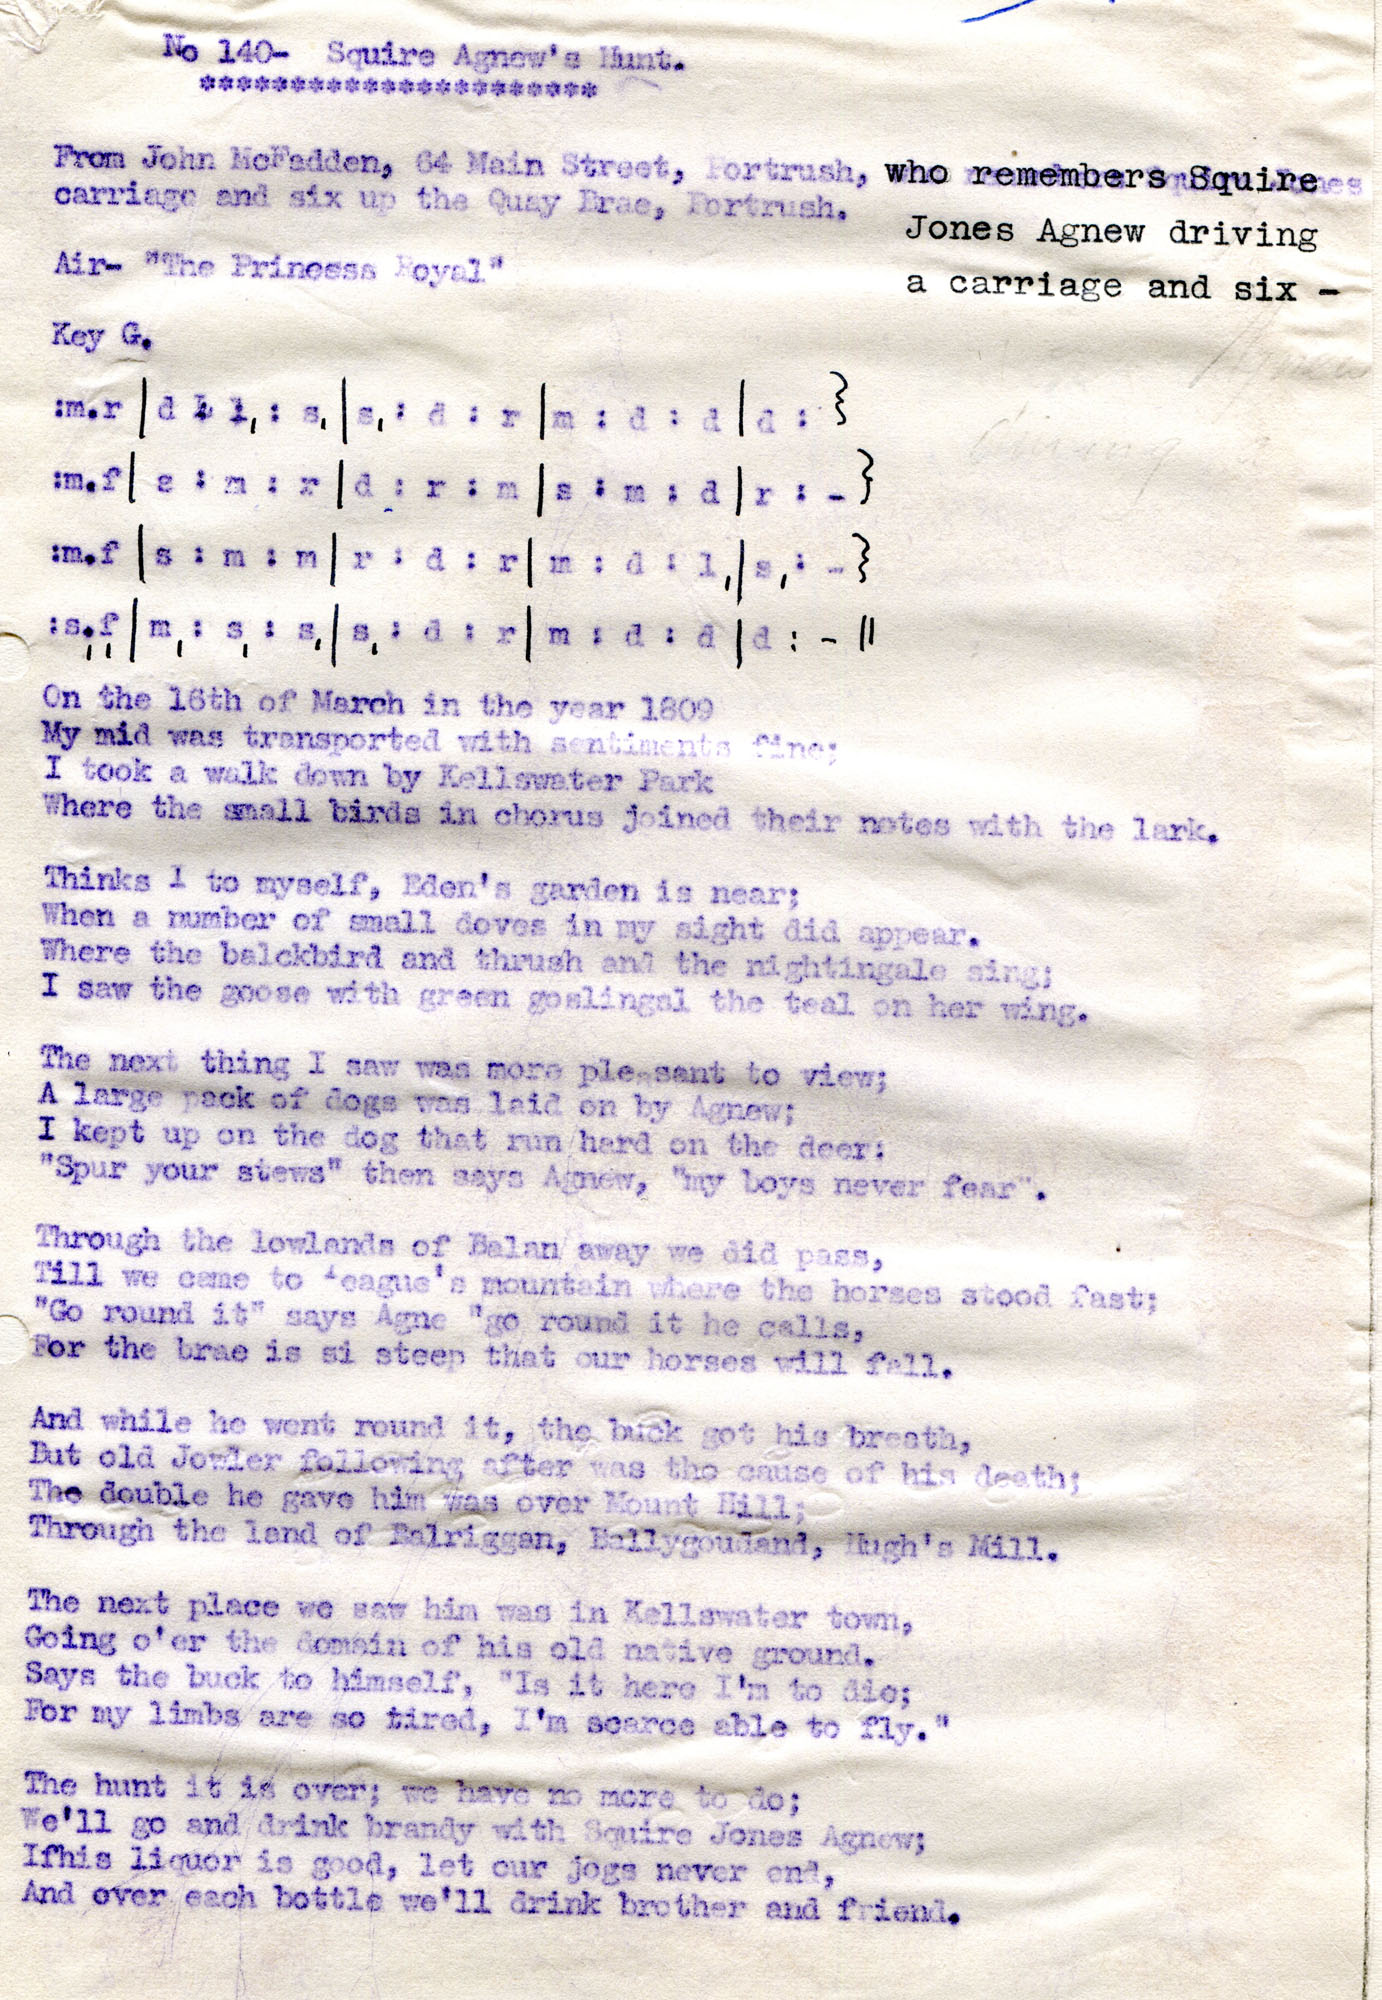 No 140- Squire Agnew's Hunt.
**********************
From John McFadden, 64 Main Street, Portrush, who remembers Squire
carriage and six up the Quay Brae, Portrush.
Jones Agnew driving
a carriage and six -
Air- "The Princess Royal"
Key G.
:m.r | d : l, : s, | s, : d : r | m : d : d | d : }
:m.f | s : m : r | d : r : m | s : m : d | r : - }
:m.f | s : m : m | r : d : r | m : d : l, | s, : - }
:s,.f, | m, : s, : s, | s, : d : r | m : d : d | d : - ||
On the 16th of March in the year 1809
My mid was transported with sentiments fine;
I took a walk down by Kellswater Park
Where the small birds in chorus joined their notes with the lark.
Thinks I to myself, Eden's garden is near;
When a number of small doves in my sight did appear.
Where the balckbird and thrush and the nightingale sing;
I saw the goose with green goslingsl the teal on her wing.
The next thing I saw was more pleasant to view;
A large pack of dogs was laid on by Agnew;
I kept up on the dog that run hard on the deer:
"Spur your stews" then says Agnew, "my boys never fear".
Through the lowlands of Balan away we did pass,
Till we came to 'eague's mountain where the horses stood fast;
"Go round it" says Agne "go round it he calls,
For the brae is si steep that our horses will fall.
And while he went round it, the buck got his breath,
But old Jowler following after was the cause of his death;
The double he gave him was over Mount Hill;
Through the land of Balriggan, Ballygoudand, Hugh's Mill.
The next place we saw him was in Kellswater town,
Going o'er the domain of his old native ground.
Says the buck to himself, "Is it here I'm to die;
For my limbs are so tired, I'm scarce able to fly."
The hunt it is over; we have no more to do;
We'll go and drink brandy with Squire Jones Agnew;
Ifhis liquor is good, let our jogs never end,
And over each bottle we'll drink brother and friend.